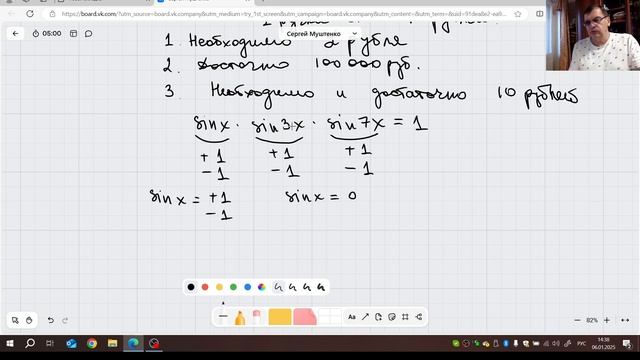 https://board.vk.company/?utm_source=board.vk.company&utm_medium=try_1st_screen&utm_campaign=board.vk.company&utm_content=&utm_term=&sid=91dea8e2-ea9...
05:00
Сергей Муштенко
1. Необходимо 2 рубля
2. Достаточно 100 000 руб.
3. Необходимо и достаточно 10 рублей
sin x · sin 3x · sin 7x = 1
+1 +1 +1
-1 -1 -1
sin x = +1 sin x = 0
-1
Aa
82%
РУС
14:38
06.01.2025